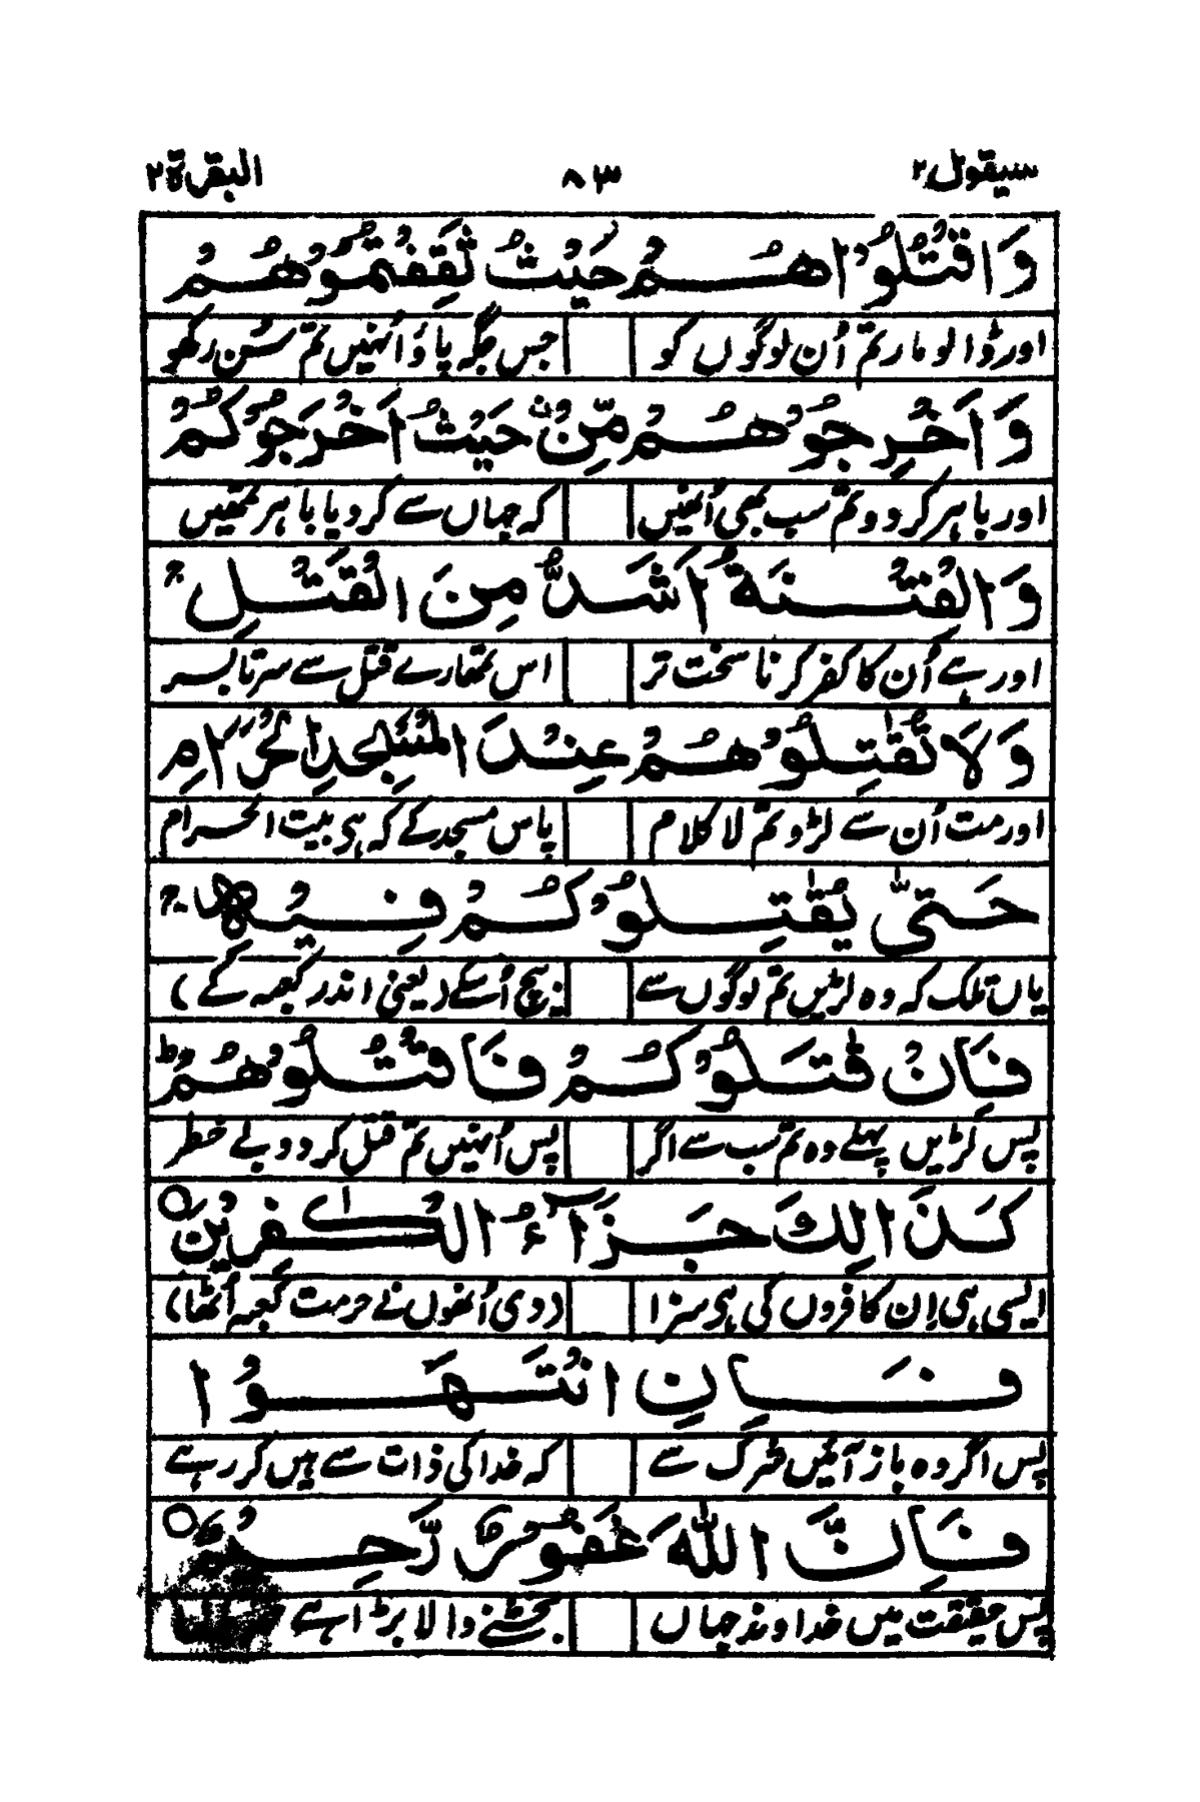 سیقول۲ ۸۳ البقرة۲
وَاقْتُلُوْاهُمْ حَيْثُ ثَقِفْتُمُوْهُمْ
اور ڈالو مار تم اُن لوگوں کو جس جگہ پاؤ اُنہیں تم سُن رکھو
وَاَخْرِجُوْهُمْ مِّنْ حَيْثُ اَخْرَجُوْكُمْ
اور باہر کر دو تم سب بھی اُنھیں کہ جہاں سے کر دیا باہر تمھیں
وَالْفِتْنَةُ اَشَدُّ مِنَ الْقَتْلِ ج
اور ہے اُن کا کفر کرنا سخت تر اس تمھارے قتل سے سرتا بسر
وَلَا تُقٰتِلُوْهُمْ عِنْدَ الْمَسْجِدِ الْحَرَامِ
اور مت اُن سے لڑو تم لا کلام پاس مسجد کے کہ ہی بیت الحرام
حَتّٰى يُقٰتِلُوْكُمْ فِيْهِ ج
یاں تلک کہ وہ لڑیں تم لوگوں سے بیچ اُسکے (یعنی اندر کعبہ کے)
فَاِنْ قٰتَلُوْكُمْ فَاقْتُلُوْهُمْ ط
پس لڑیں پہلے وہ تم سب سے اگر پس اُنہیں تم قتل کر دو بے خطر
كَذَالِكَ جَزَآءُ الْكٰفِرِيْنَ ○
ایسی ہی اِن کافروں کی ہی سزا (دی اُنھوں نے حرمت کعبہ اُٹھا)
فَاِنِ انْتَهَوْا
پس اگر وہ باز آئیں شرک سے کہ خدا کی ذات سے ہیں کر رہے
فَاِنَّ اللّٰهَ غَفُوْرٌ رَّحِيْمٌ ○
پس حقیقت میں خداوند جہاں بخشنے والا بڑا ہے